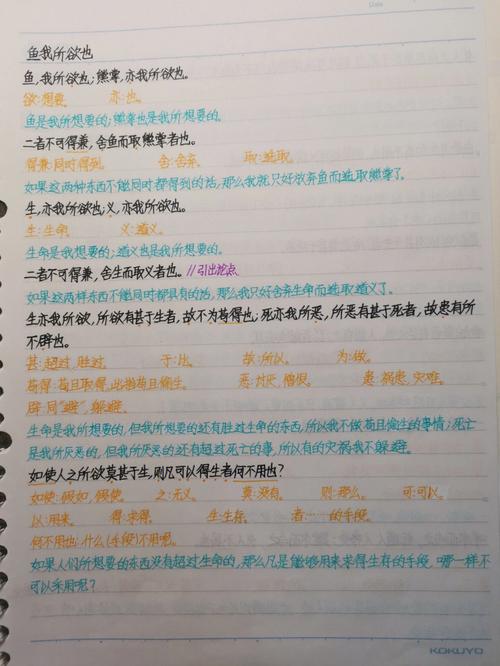 Date
鱼我所欲也
鱼,我所欲也;熊掌,亦我所欲也。
欲:想要。 亦:也。
鱼是我所想要的;熊掌也是我所想要的。
二者不可得兼,舍鱼而取熊掌者也。
得兼:同时得到。 舍:舍弃。 取:选取。
如果这两种东西不能同时都得到的话,那么我就只好放弃鱼而选取熊掌了。
生,亦我所欲也;义,亦我所欲也。
生:生命。 义:道义。
生命是我所想要的;道义也是我所想要的。
二者不可得兼,舍生而取义者也。//引出论点
如果这两样东西不能同时都具有的话,那么我只好舍弃生命而选取道义了。
生亦我所欲,所欲有甚于生者,故不为苟得也;死亦我所恶,所恶有甚于死者,故患有所
不辟也。
甚:超过,胜过。 于:比。 故:所以。 为:做。
苟得:苟且取得,此指苟且偷生。 恶:讨厌,憎恨。 患:祸患,灾难。
辟:同“避”,躲避。
生命是我所想要的,但我所想要的还有胜过生命的东西,所以我不做苟且偷生的事情;死亡
是我所厌恶的,但我所厌恶的还有超过死亡的事,所以有的灾祸我不躲避。
如使人之所欲莫甚于生,则凡可以得生者何不用也?
如使:假如,假使。 之:无义。 莫:没有。 则:那么。 可:可以。
以:用来。 得:求得。 生:生存。 者:……的手段。
何不用也:什么(手段)不用呢。
如果人们所想要的东西没有超过生命的,那么凡是能够用来求得生存的手段,哪一样不
可以采用呢?
KOKUYO